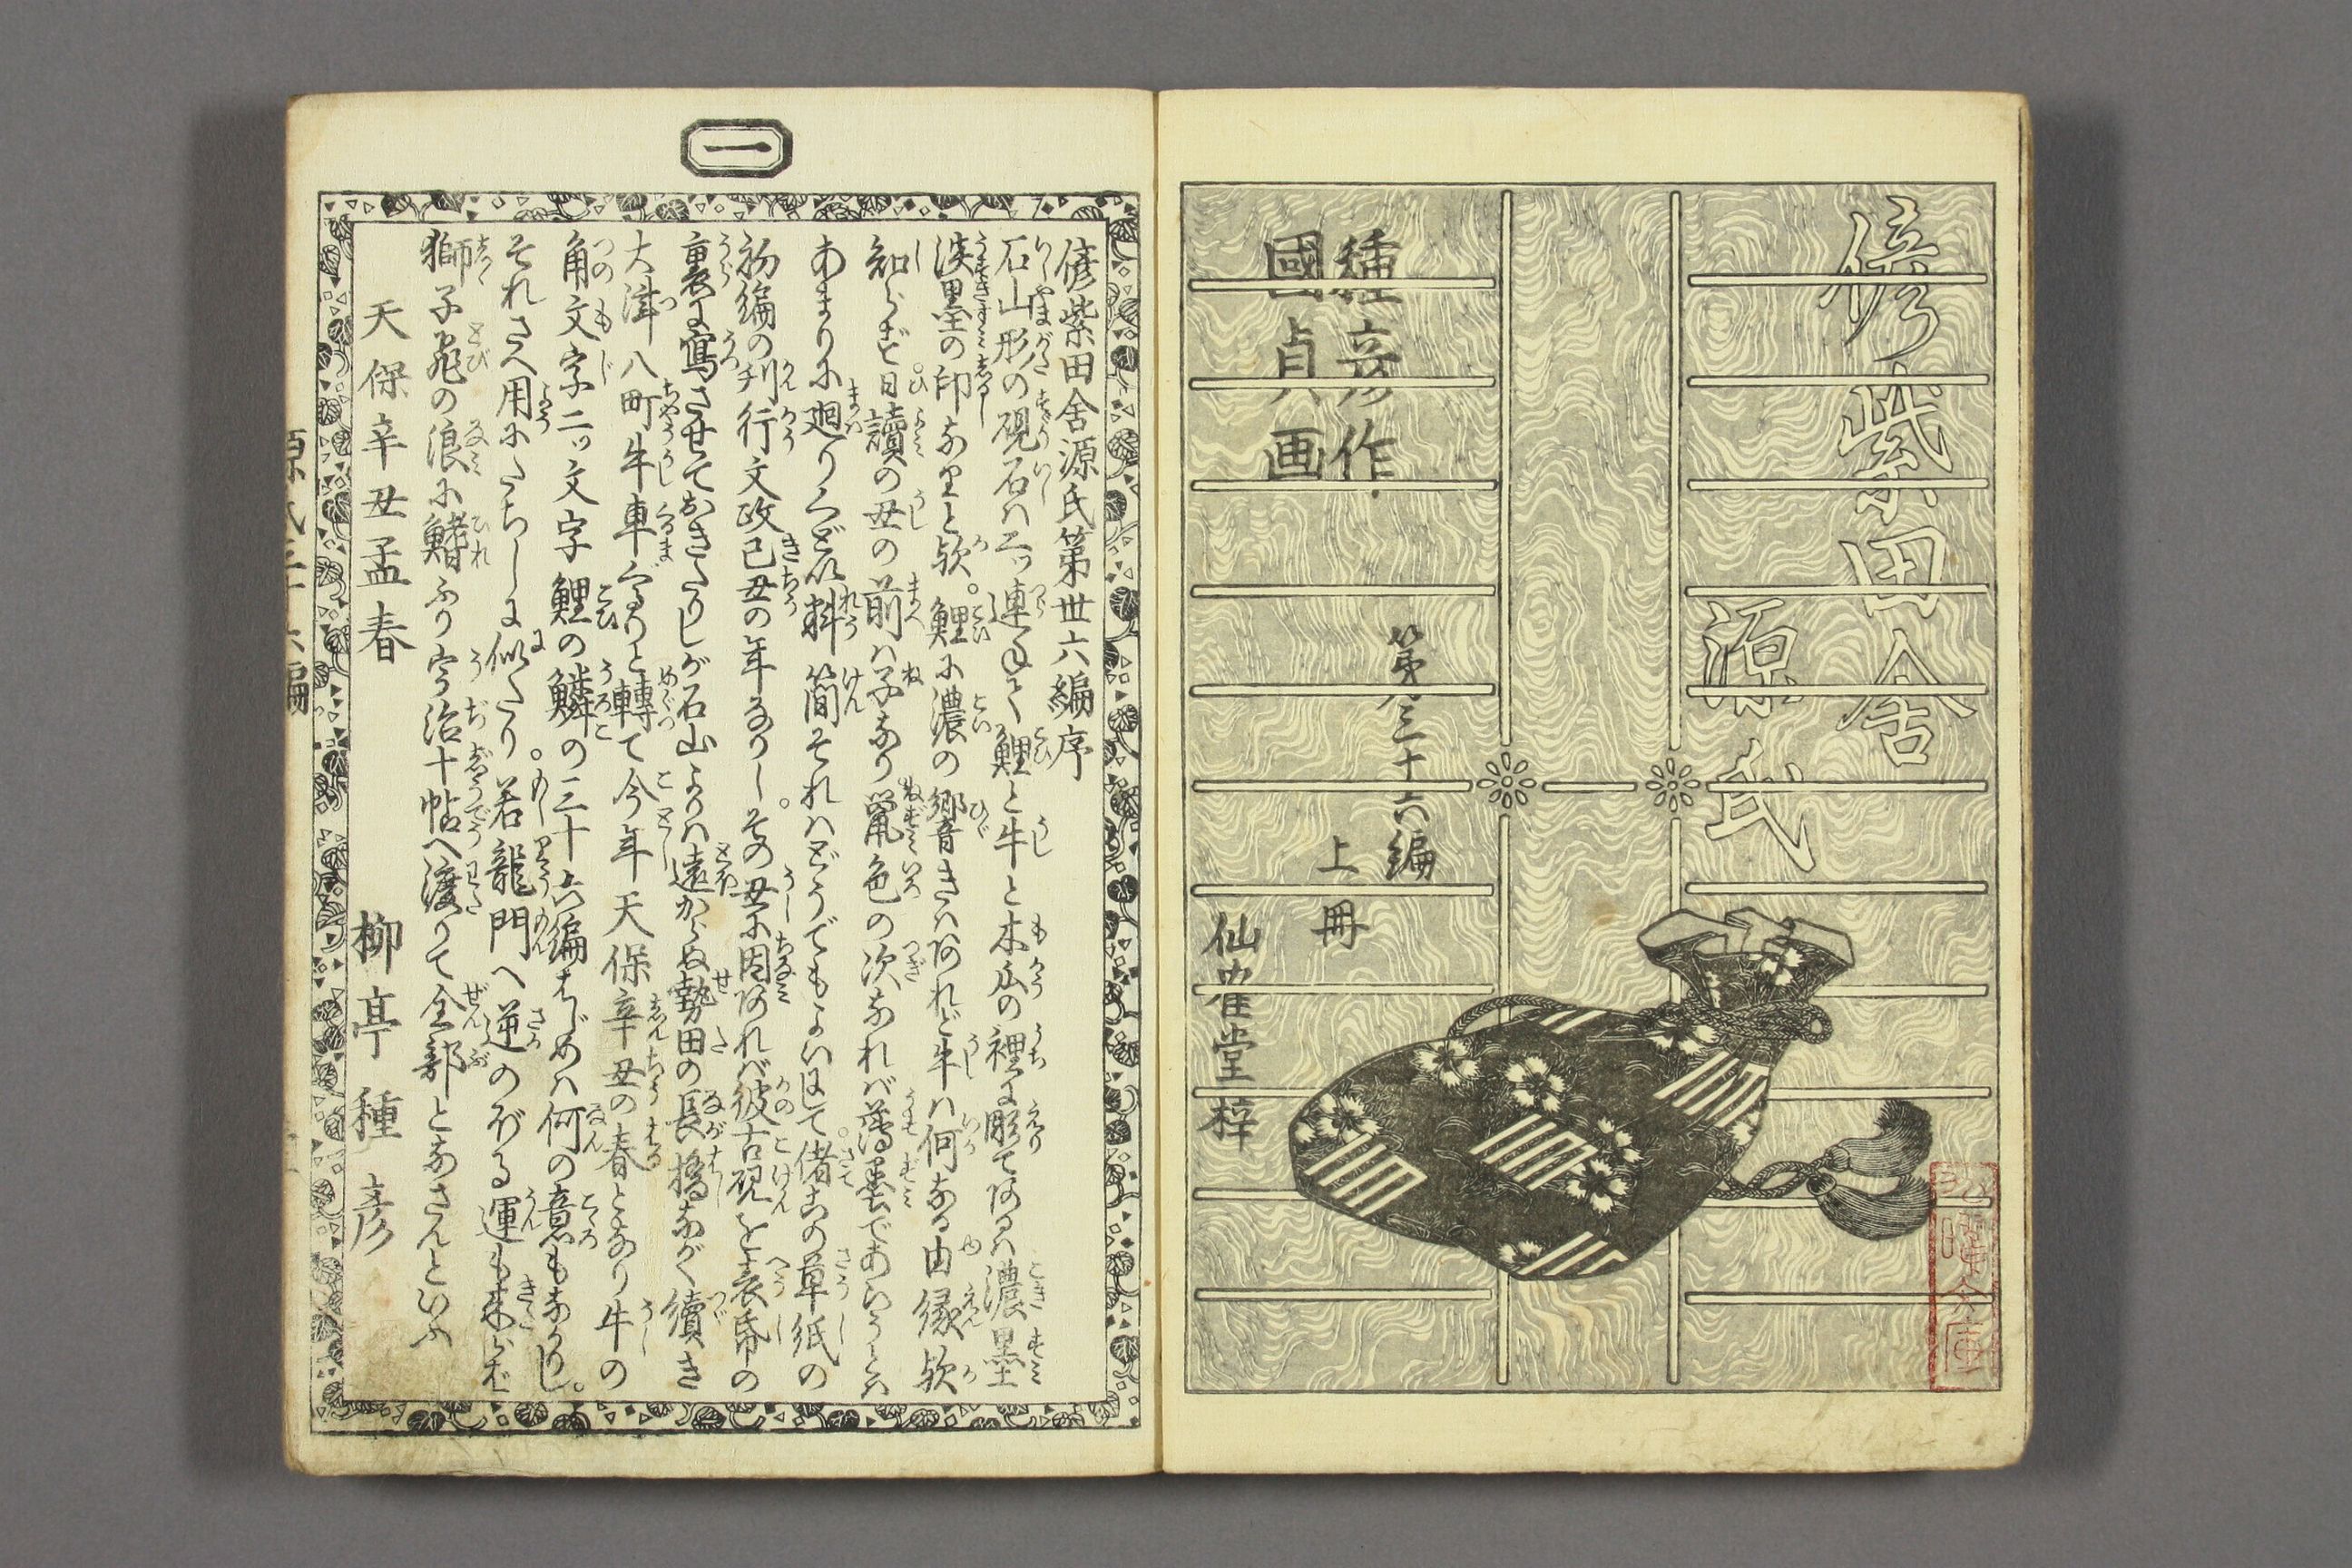 偐紫田舎
源氏
種彦作
國貞画
第三十六編
上冊
仙隺堂梓
一
偐紫田舎源氏第丗六編序
石山形の硯石ハ二ッ連ねて鯉と牛と木瓜の裡に彫てあるハ濃墨
淡墨の印なりと欤。鯉に濃の響きハあれど牛ハ何なる由縁欤
知らず。日讀の丑の前ハ子なり鼠色の次なれば薄墨であらうとハ
あまりに廻りくどい料簡それハどうでもよいにして。偖此の草紙の
初編の刊行文政己丑の年なりし。その丑に因あれば彼古硯を表帋の
裏に寫させておきたりしが石山よりハ遠からぬ勢田の長橋ながく續き
大津八町牛車ぐるりと轉て今年天保辛丑の春となり牛の
角文字二ッ文字鯉の鱗の三十六編はじめハ何の意もなかりし。
それさへ用にたちしに似たり。若龍門へ逆のぼる運も来らば
獅子飛の浪に鰭ふり宇治十帖へ渡りて全部となさんといふ
天保辛丑孟春
柳亭種彦